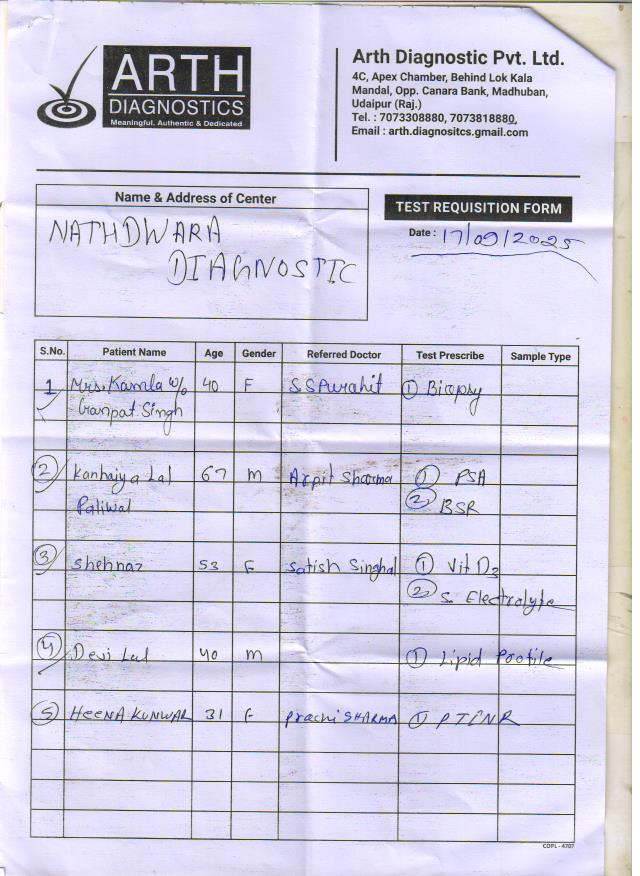 ARTH
DIAGNOSTICS
Meaningful, Authentic & Dedicated
Arth Diagnostic Pvt. Ltd.
4C, Apex Chamber, Behind Lok Kala
Mandal, Opp. Canara Bank, Madhuban,
Udaipur (Raj.)
Tel. : 7073308880, 7073818880,
Email : arth.diagnositcs.gmail.com
Name & Address of Center
NATHDWARA
DIAGNOSTIC
TEST REQUISITION FORM
Date : 17/09/2025
S.No. Patient Name Age Gender Referred Doctor Test Prescribe Sample Type
1 Mrs. Kamla w/o 40 F S S Purohit ① Biopsy
Ganpat Singh
② Kanhaiya Lal 67 M Arpit Sharma ① PSA
Paliwal ② BSR
③ Shehnaz 53 F Satish Singhal ① Vit D3
② S. Electrolyte
④ Devi Lal 40 M ① Lipid Profile
⑤ HEENA KUNWAR 31 F Prachi SHARMA ① PTINR
COPL - 4787